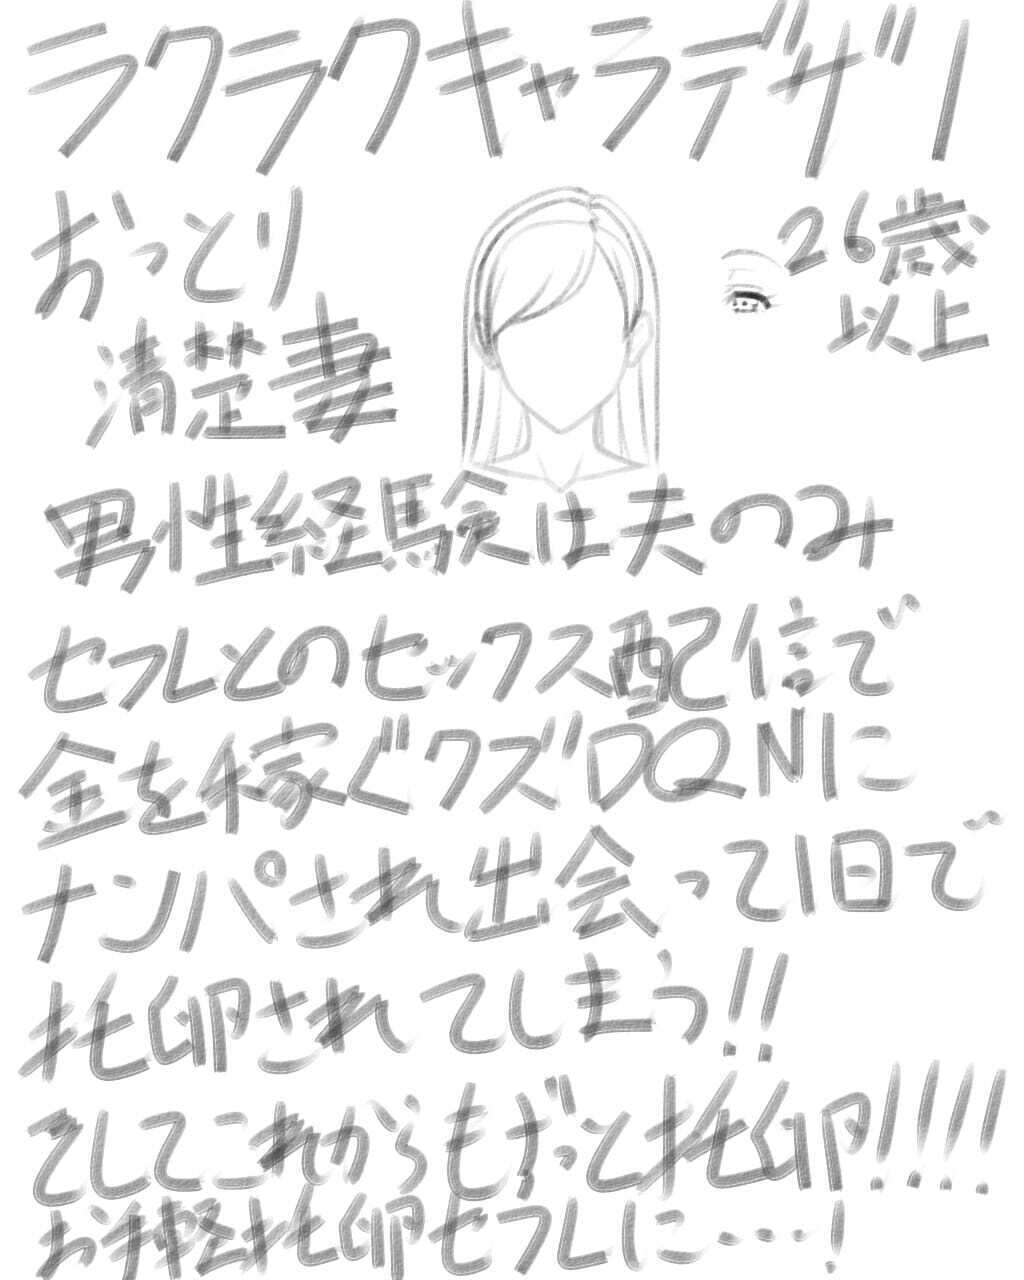 ラクラクキャラデザ！
おっとり
清楚妻
26歳
以上
男性経験は夫のみ
セフレとのセックス配信で
金を稼ぐクズDQNに
ナンパされ出会って1日で
托卵されてしまう!!
そしてこれからもずっと托卵!!!!
お手軽托卵セフレに…!